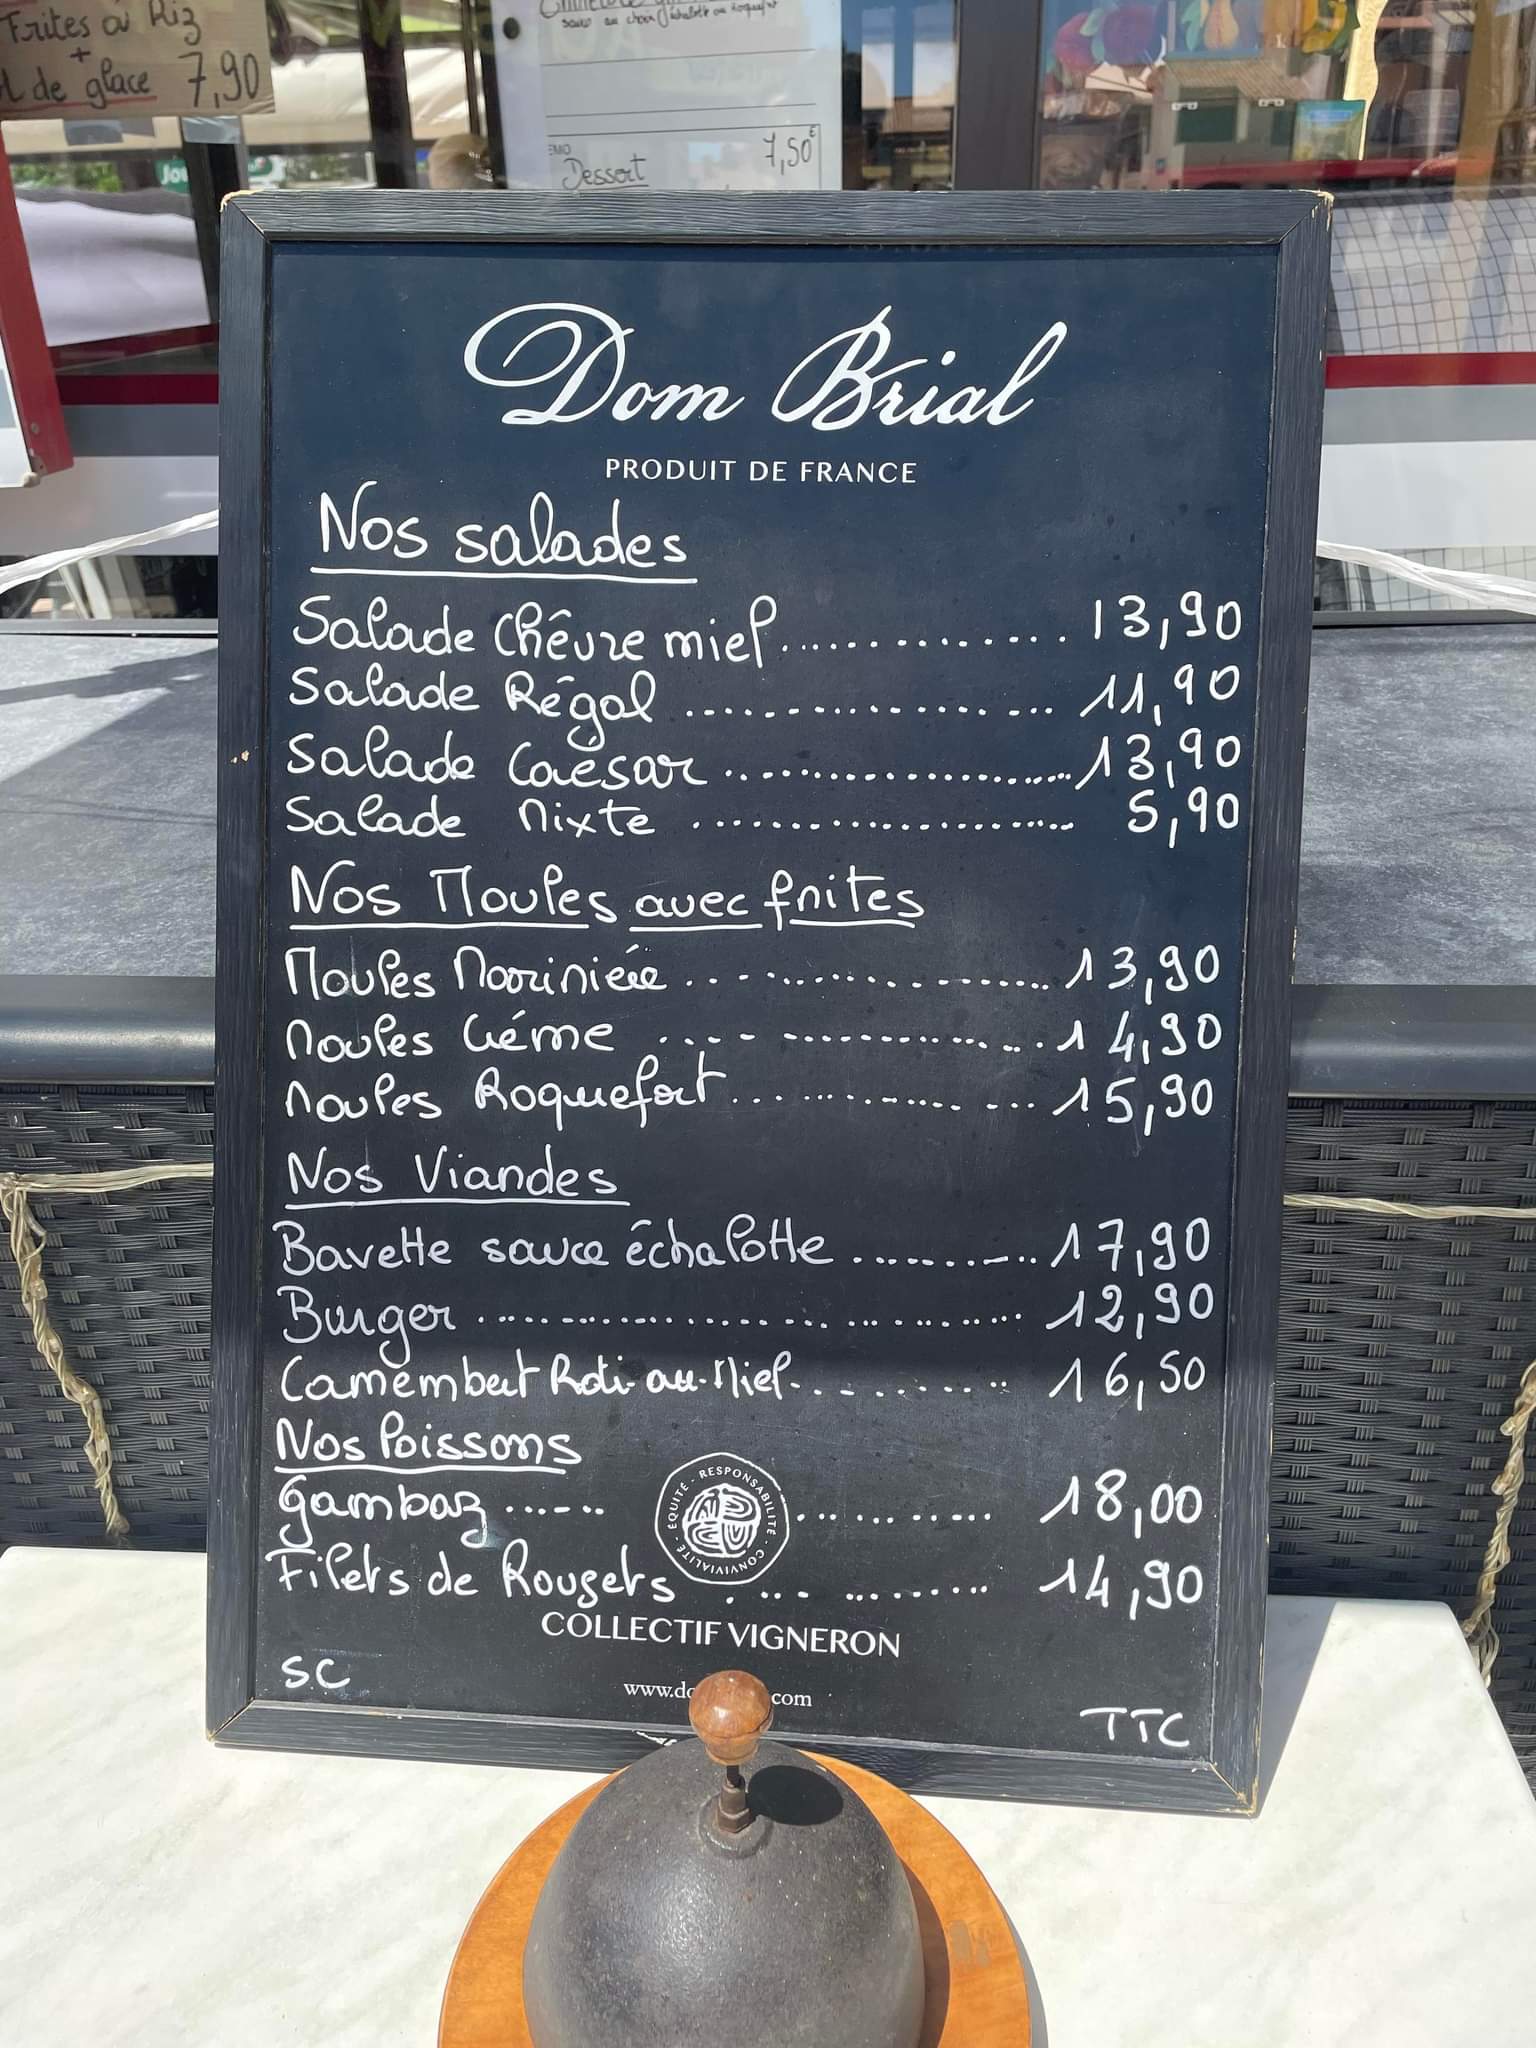 Frites ou Riz
+
de glace 7,90
sauce au choix échalotte ou roquefort
7,50€
EMO
Dessert
Dom Brial
PRODUIT DE FRANCE
Nos salades
Salade Chêvre miel.............. 13,90
Salade Régal .................. 11,90
Salade Caésar ..................... 13,90
Salade Mixte ..................... 5,90
Nos Moules avec frites
Moules Marinière .................. 13,90
Moules Créme .................. 14,90
Moules Roquefort .................. 15,90
Nos Viandes
Bavette sauce échalotte ............ 17,90
Burger ........................... 12,90
Camembert Roti au Miel............ 16,50
Nos Poissons
Gambaz ...... ............ 18,00
ÉQUITÉ - RESPONSABILITÉ - CONVIVIALITÉ -
Filets de Rougets ............ 14,90
COLLECTIF VIGNERON
SC
www.do com
TTC